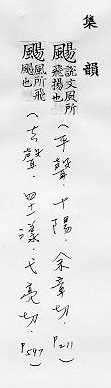 集韻
颺 說文風所飛揚也（平聲．十陽．余章切．P211）
颺 風所飛颺也（去聲．四十一漾．弋亮切．P597）